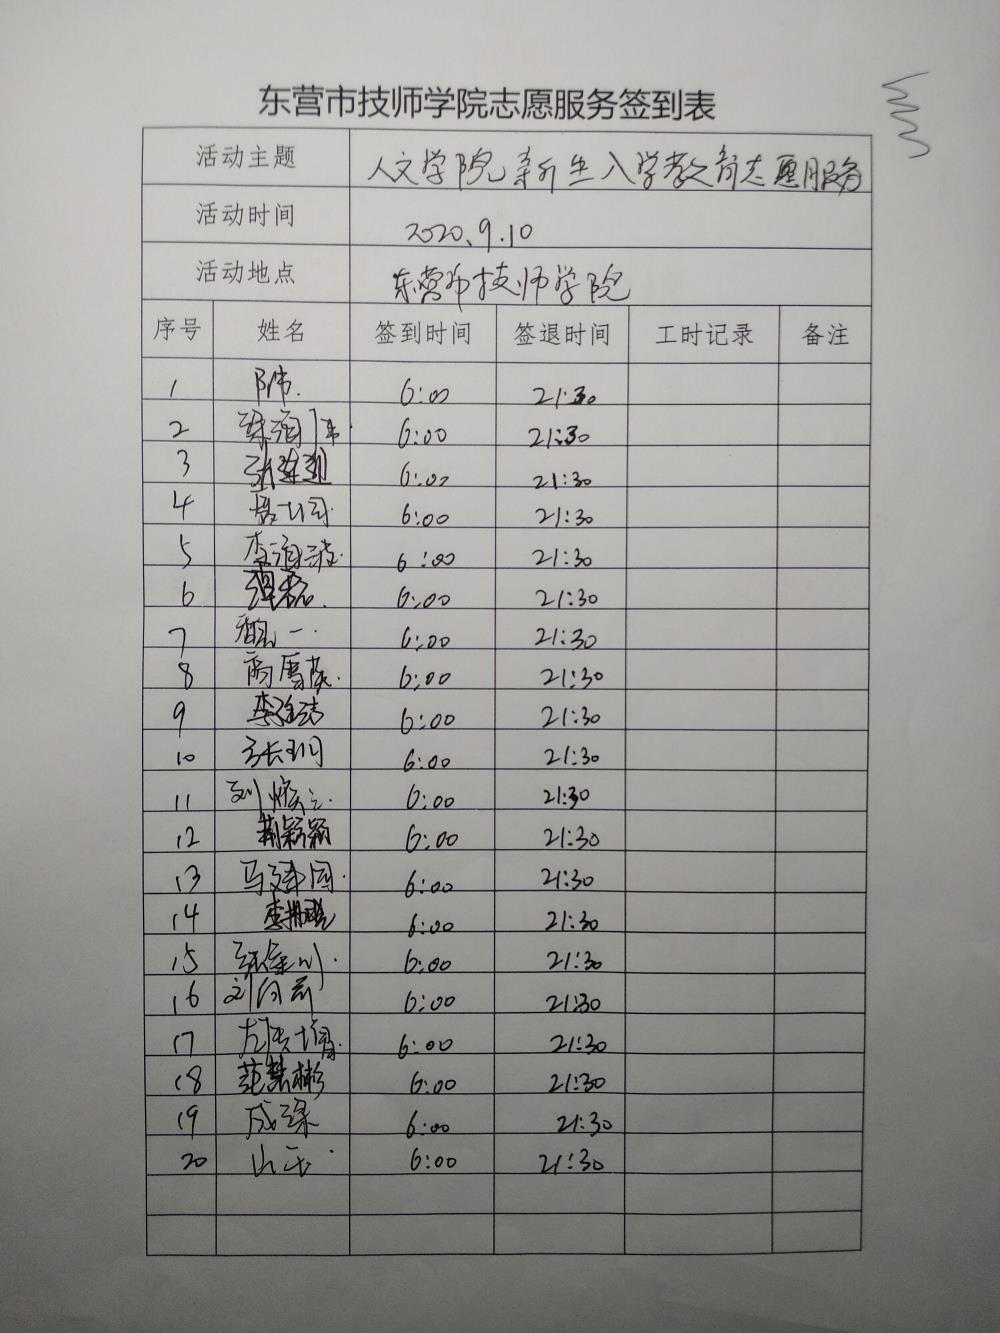 东营市技师学院志愿服务签到表
活动主题 人文学院新生入学教育志愿服务
活动时间 2020.9.10
活动地点 东营市技师学院
序号 姓名 签到时间 签退时间 工时记录 备注
1 6:00 21:30
2 6:00 21:30
3 6:00 21:30
4 6:00 21:30
5 李海波 6:00 21:30
6 6:00 21:30
7 6:00 21:30
8 6:00 21:30
9 6:00 21:30
10 6:00 21:30
11 刘 6:00 21:30
12 荆颖颖 6:00 21:30
13 马建国 6:00 21:30
14 李 6:00 21:30
15 6:00 21:30
16 刘向前 6:00 21:30
17 6:00 21:30
18 范慧彬 6:00 21:30
19 成深 6:00 21:30
20 6:00 21:30